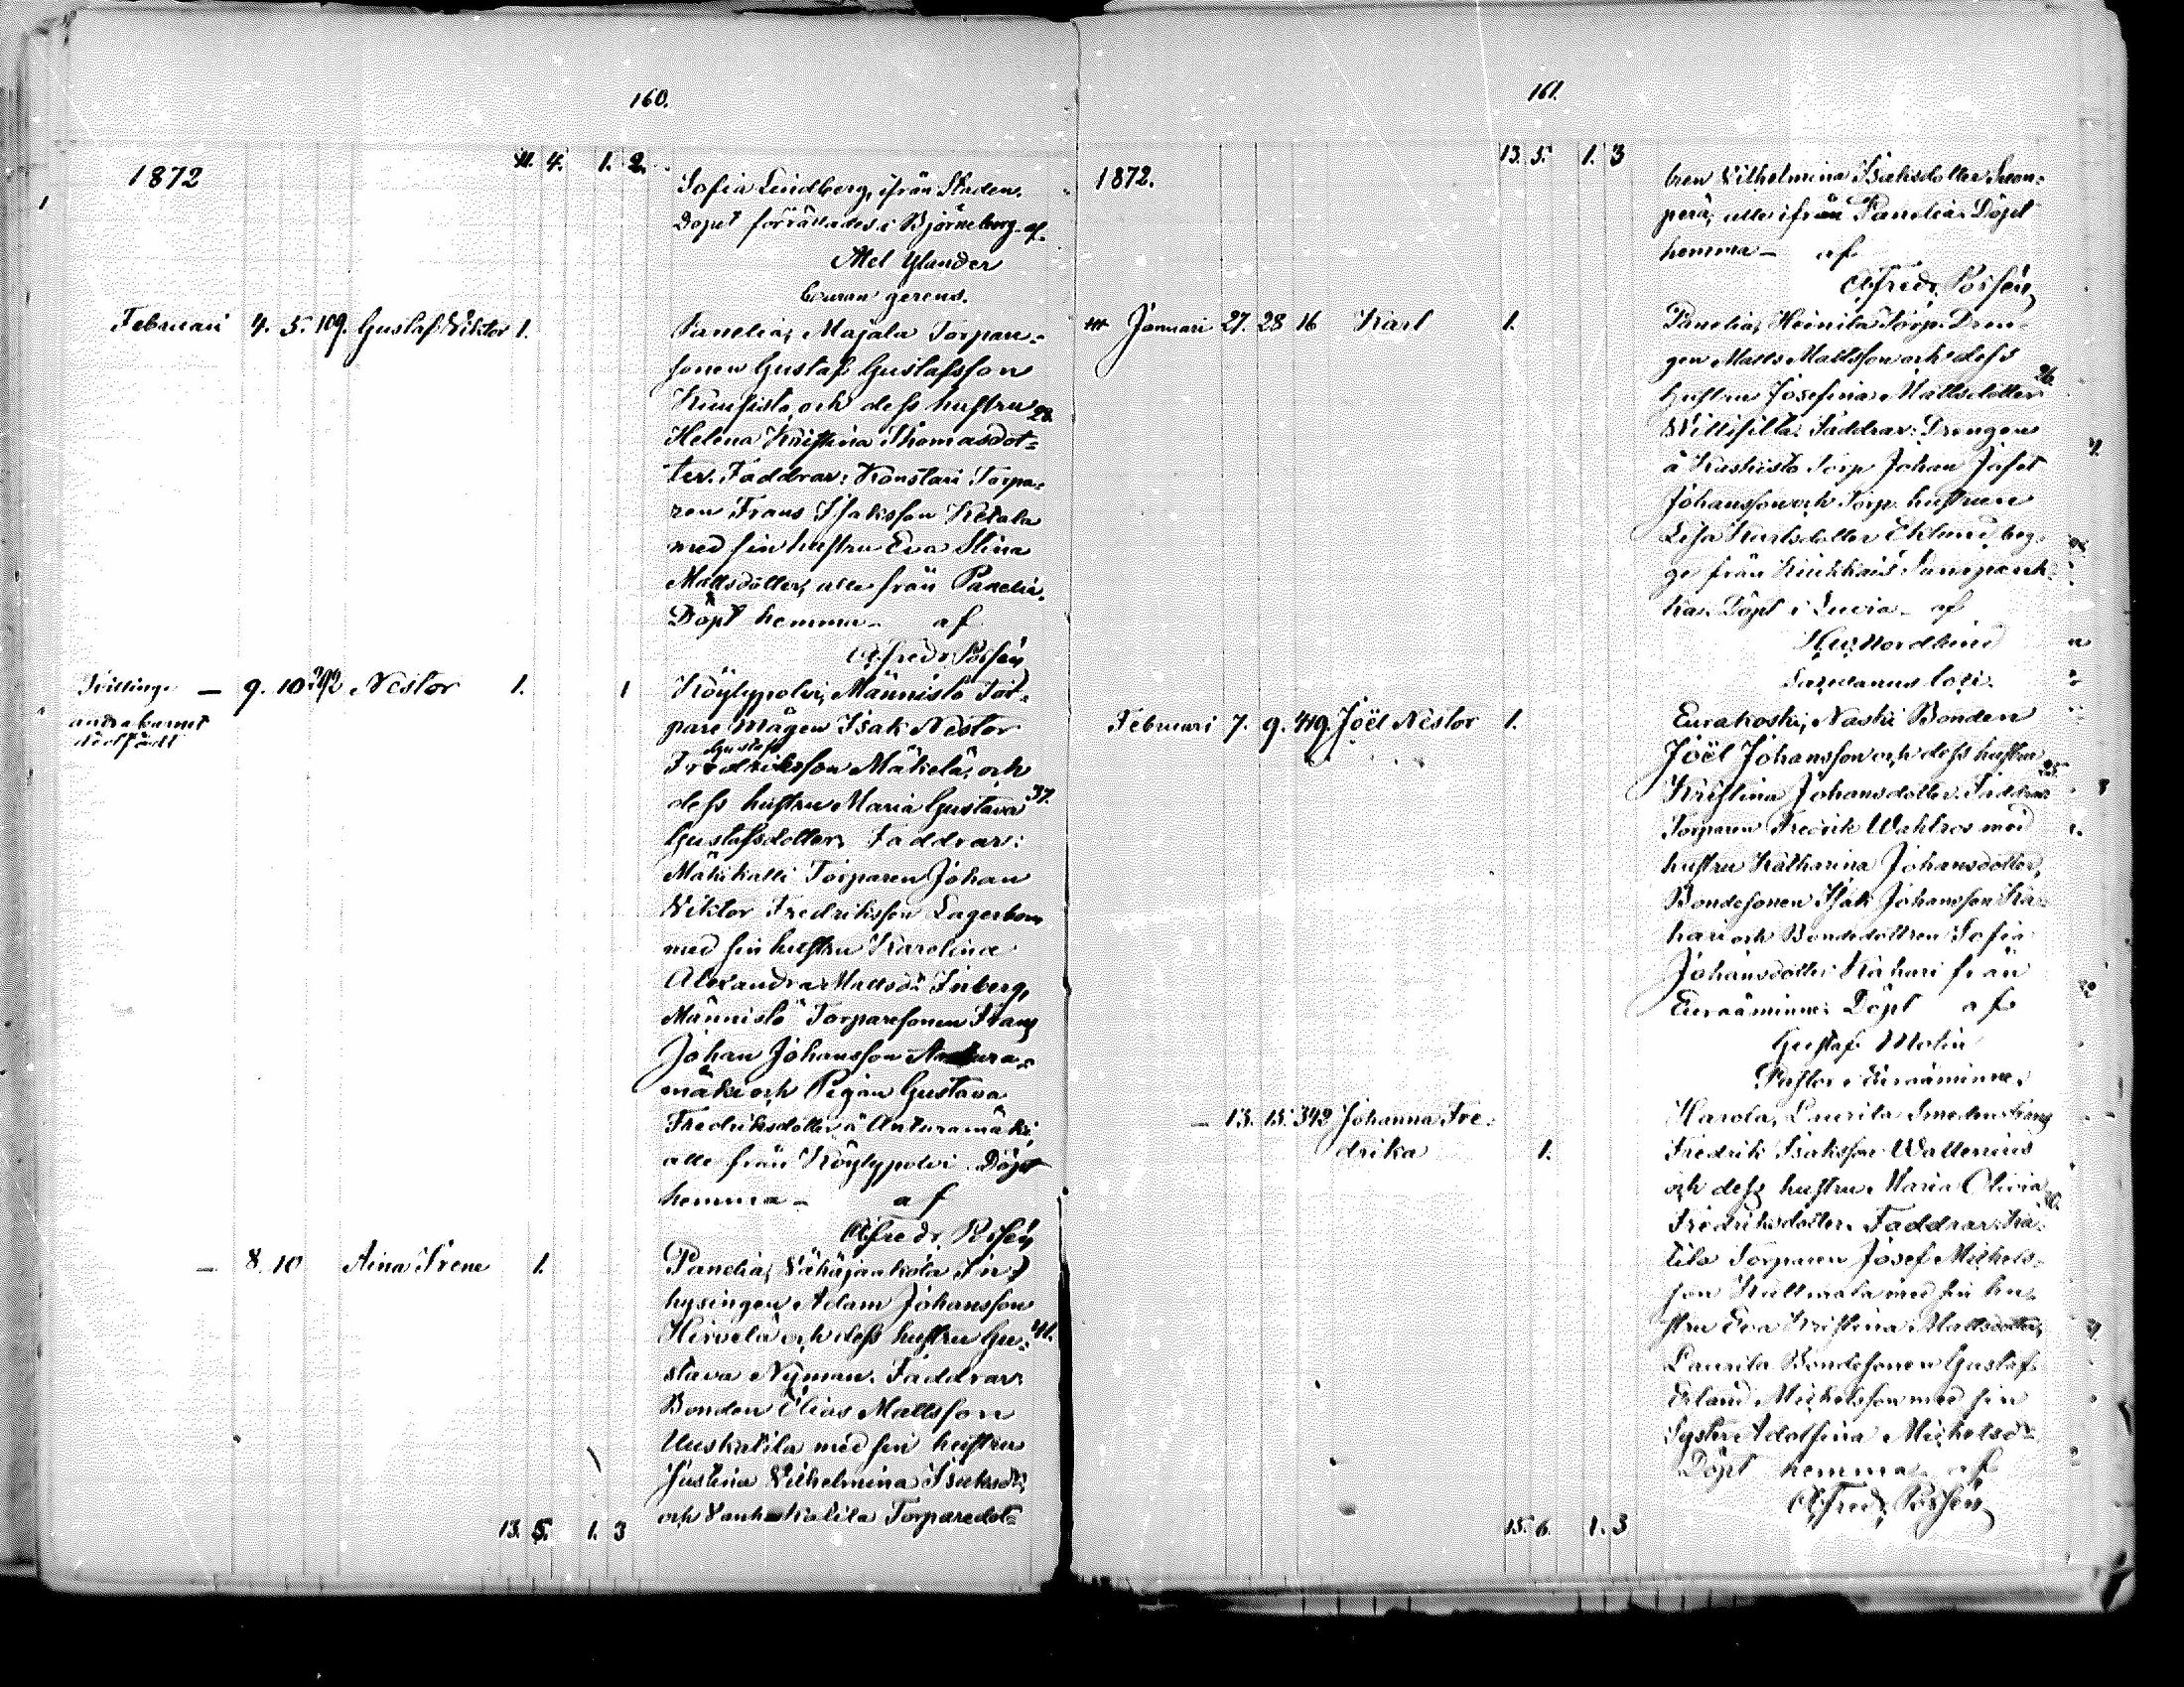 160.
1872
11. 4. 1. 2.
Sofia Lindberg, ifrån Staden.
Döpet förrättades i Björneborg af
Mel Ylander
Couran gerens.
Februari 4. 5. 109. Gustaf Viktor 1.
Panelia, Majala Torpare-
sonen Gustaf Gustafsson
Kuusisto och dess hustru 28.
Helena Kristina Thomasdot-
ter. Faddrar: Konstari Torpa-
ren Frans Isaksson Ketala
med sin hustru Eva Stina
Mattsdotter, alla från Panelia.
Döpt hemma- af
Alfred Possén
Tvillinge
andra barnet
dödfödt
— 9. 10. 292 Nestor 1. 1
Köylypolvi, Männistö Tor-
pare mågen Isak Nestor
Gustafs
Fredriksson Mäkelä, och
dess hustru Maria Gustava 37.
Gustafsdotter, Faddrar:
Mäkikalli Torparen Johan
Viktor Fredriksson Lagerbom
med sin hustru Karolina
Alexandra Mattsdr Inberg,
Männistö Torparesonen Frans
Johan Johansson Antura-
mäki och Pigan Gustava
Fredriksdotter å Anturamäki,
alla från Köylypolvi. Döpt
hemma- af
Alfredr. Possén
— 8. 10 Aina Irene 1.
Panelia, Vähäjaakola In-
hysingen Adam Johansson
Hirvelä och dess hustru Gu- 41.
stava Nyman. Faddrar:
Bonden Elias Mattsson
Uuskatila med sin hustru
Justina Vilhelmina Isaksdr,
och Vanhakalila Torparedot-
13. 5. 1. 3
161.
1872.
13. 5. 1. 3
tren Vilhelmina Isaksdotter Suon-
perä, alla ifrån Panelia. Döpt
hemma- af
Alfredr. Possén
Januari 27. 28 16 Karl 1.
Panelia, Heinila Torp. Dren-
gen Matts Mattsson och dess
hustru Josefina Mattsdotter 26.
Willisilla. Faddrar: Drengen
å Kuskisto Torp Johan Jafet
Johansson och Torp. hustrun
Lisa Karlsdotter Eklund beg-
ge från Kiukkais Panipank-
ka. Döpt i Luvia af
K. W. Nordlund
Sacellanus loci.
Februari 7. 9. 419. Joël Nestor 1.
Eurakoski, Naski Bonden
Joël Johansson och dess hustru 25.
Kristina Johansdotter. Faddrar
Torparen Fredrik Wahlros med
hustru Katharina Johansdotter,
Bondesonen Isak Johansson Ka-
hari och Bondedottren Sofia
Johansdotter Kahari från
Euraåminne. Döpt af
Gustaf Molin
Pastor i Euraåminne.
— 13. 15. 342 Johanna Fre-
drika 1.
Harola, Laurila Smedmästing
Fredrik Isaksson Wallenius
och dess hustru Maria Olivia
Fredriksdotter. Faddrar: Ka-
tila Torparen Josef Michels-
son Kullmala med sin hu-
stru Eva Kristina Mattsdotter,
Laurila Bondesonen Gustaf
Erland Michelsson med sin
Syster Adolfina Michelsdr
Döpt hemma af
Alfredr. Possén
15. 6. 1. 3